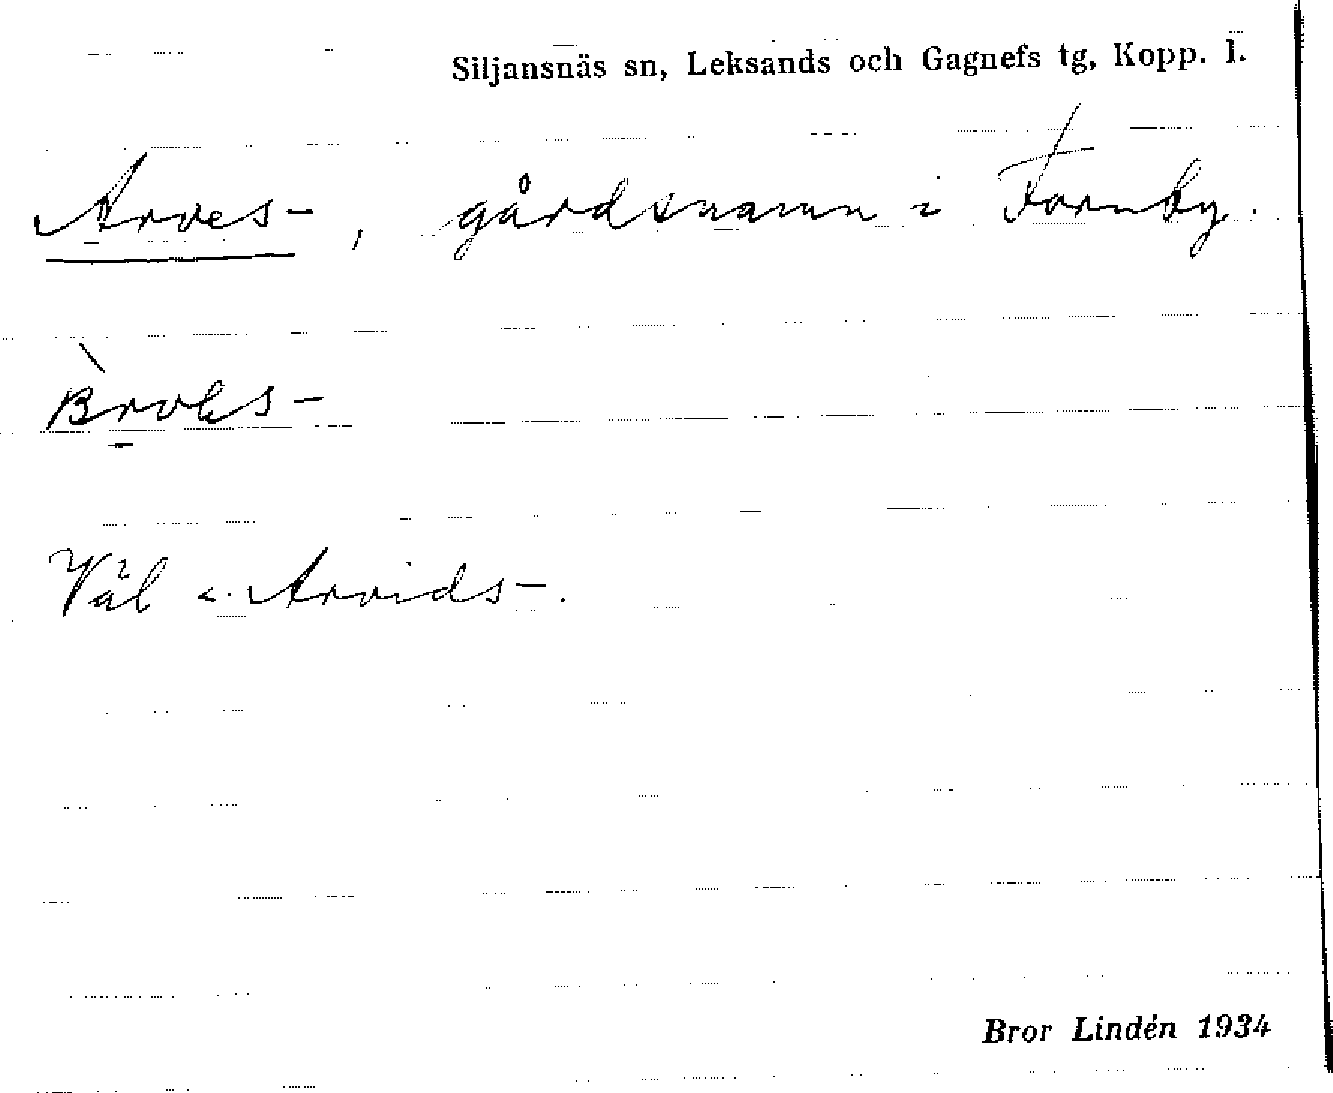 Siljansnäs sn, Leksands och Gagnefs tg, Kopp. l.
Arves-, gårdsnamn i Fornby.
Väl &lt;. Arvids-.
Bror Lindén 1934